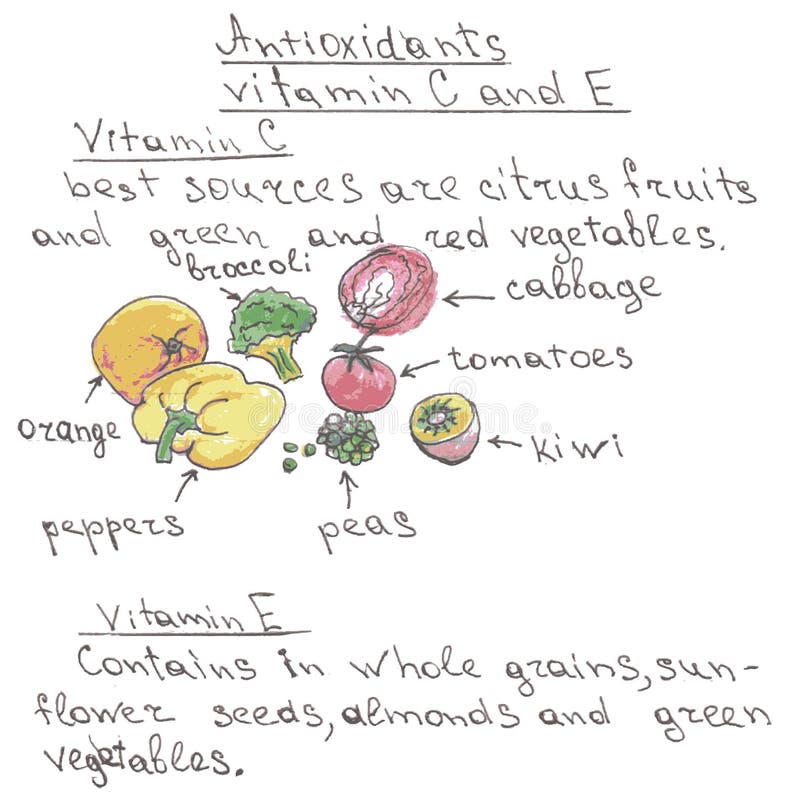 Antioxidants
vitamin C and E
Vitamin C
best sources are citrus fruits
and green and red vegetables.
broccoli
cabbage
tomatoes
orange
kiwi
peppers
peas
Vitamin E
Contains in whole grains, sun-
flower seeds, almonds and green
vegetables.
dreamstime